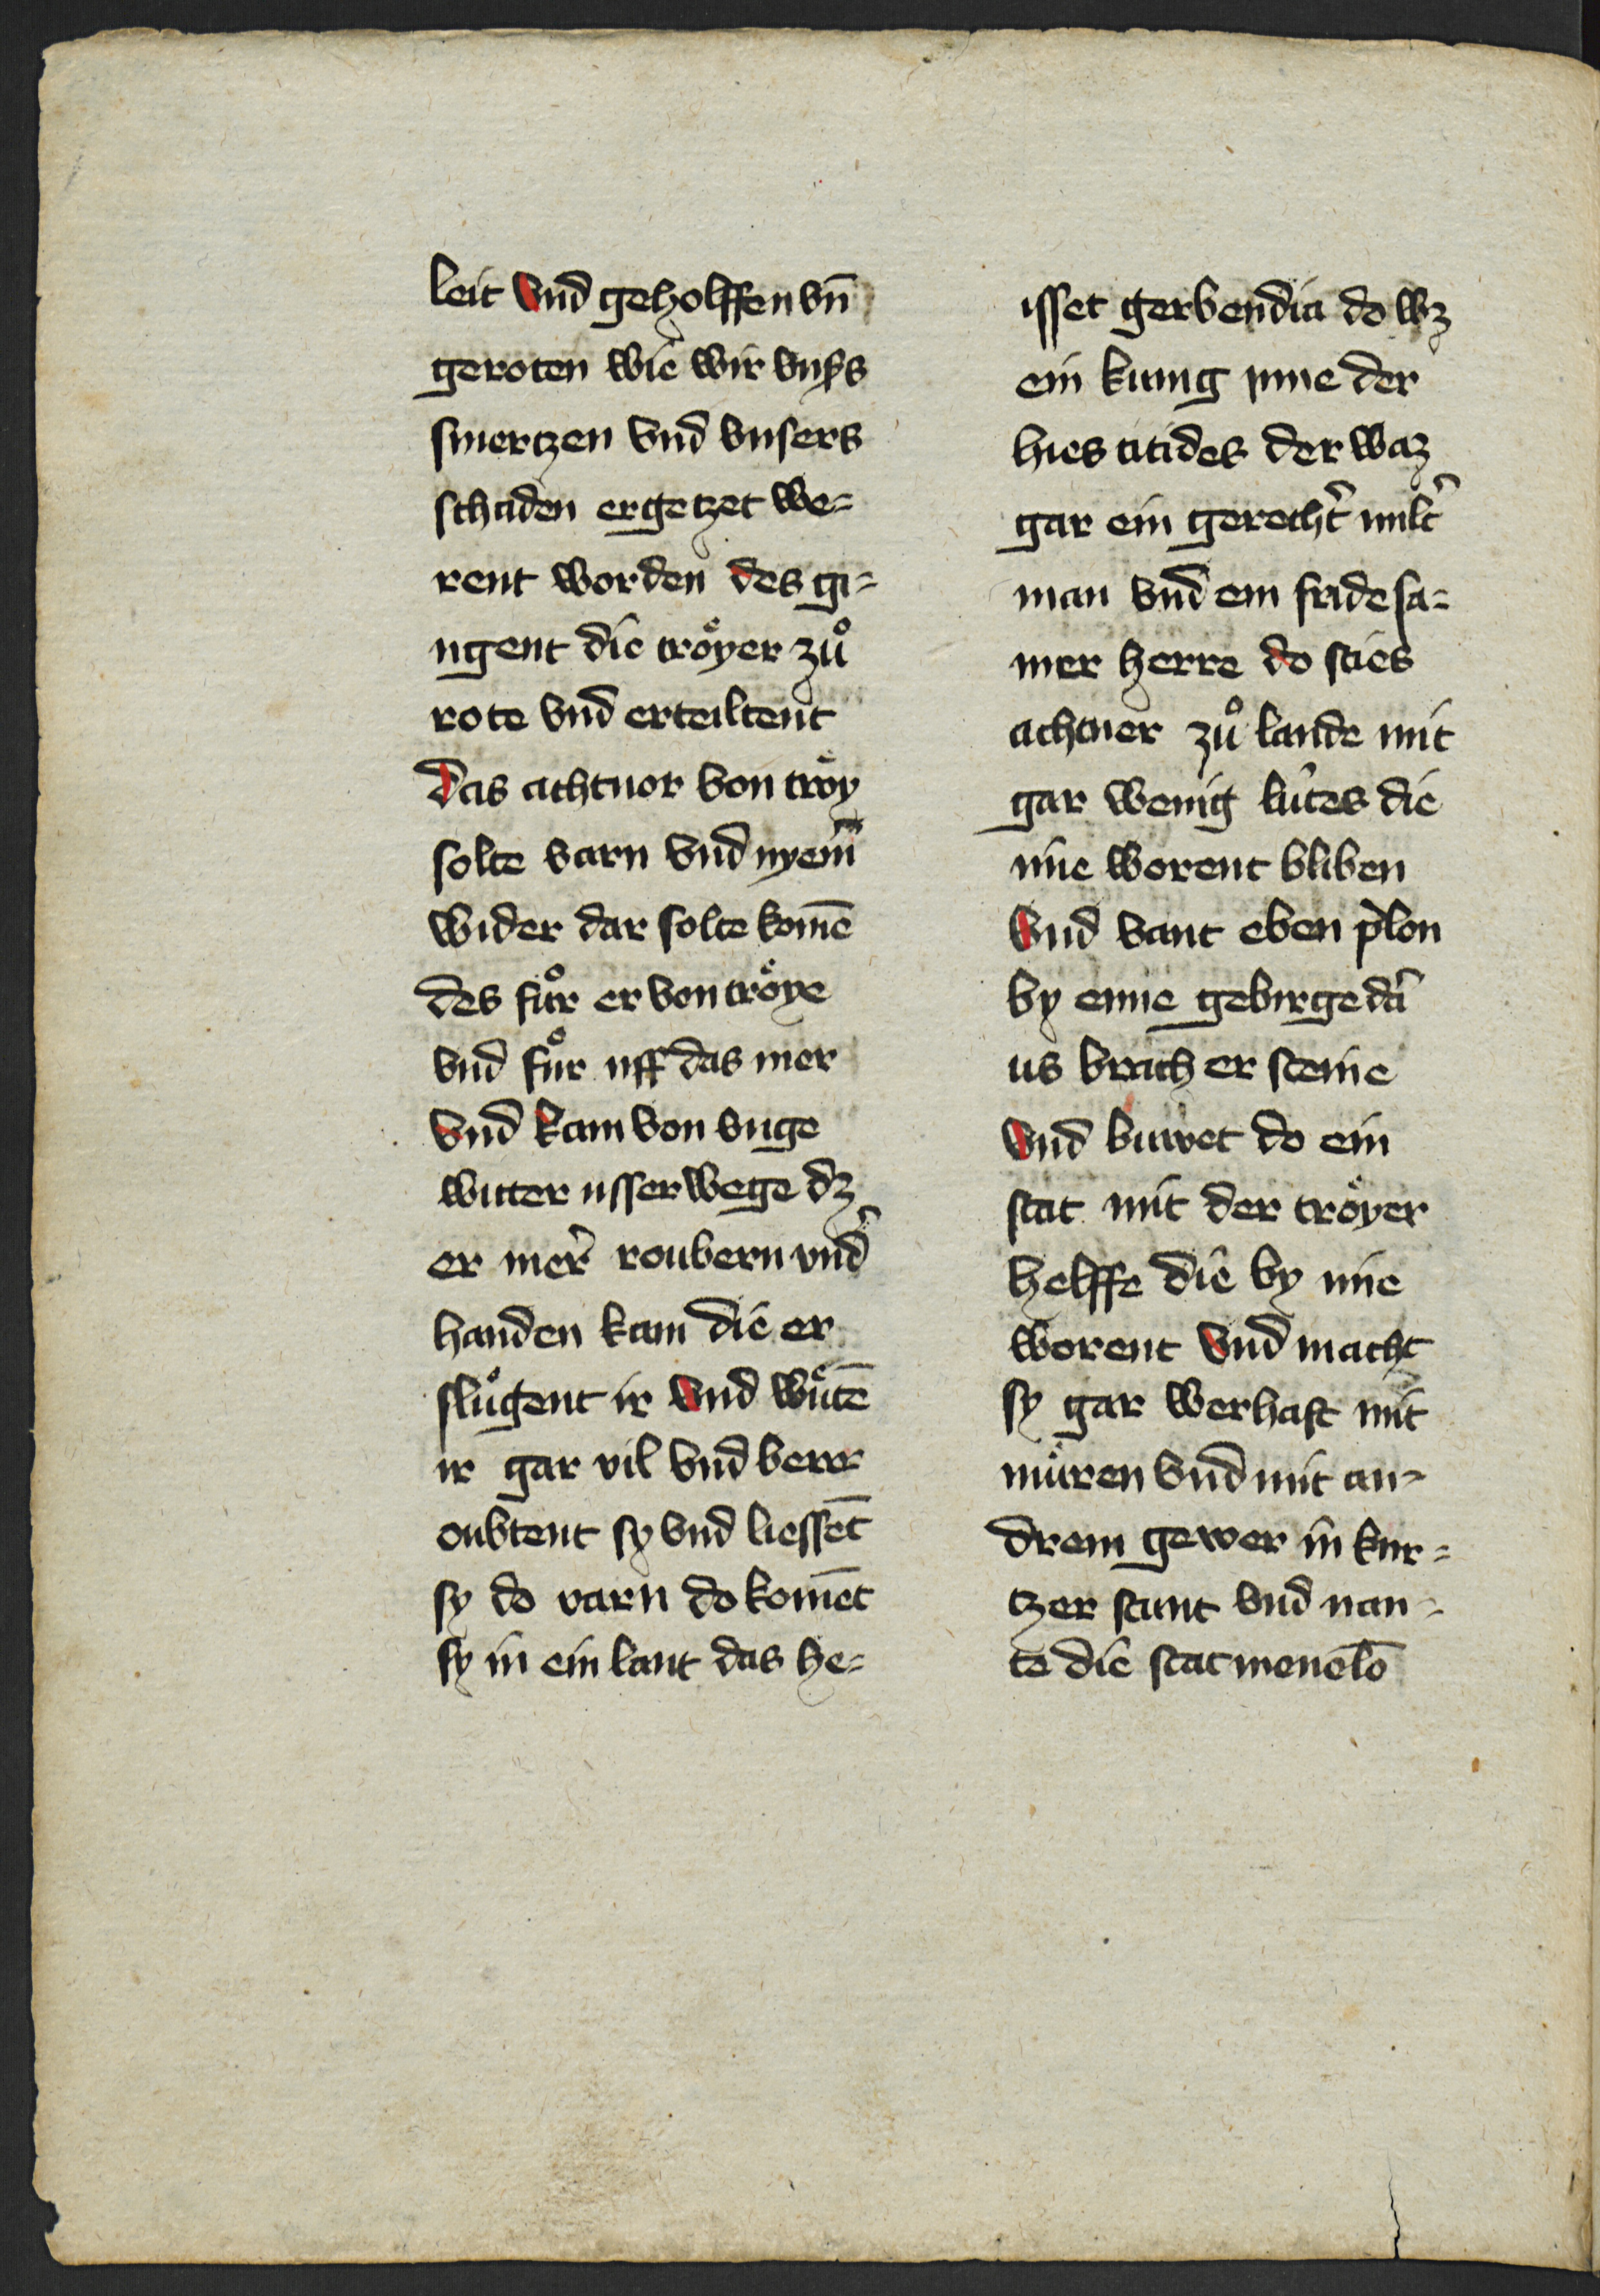 leit vnd geholffen vn̄
geroten wie wir vnßs
smertzen vnd vnsers
schaden ergetzet we⸗
rent worden des gi⸗
ngent die tro̊yer zů
rote vnd erteiltent
das achtuor von tro̊y
solte varn vnd nyem̄
wider dar solte komē
des fůr er von tro̊ye
vnd fůr uff das mer
vnd kam von vnge
witter usser wege dz
er mer̉ roubern vnd̉
handen kam die er
slůgent ir vnd wůtē
ir gar vil vnd berr
oubtent sy vnd liessēt
sy do varn do komēt
sy in ein lant das he⸗
isset gerbendia do wz
ein kunig inne der
hies atides der waz
gar ein gerecht̉ milt̉
man vnd ein fridesa⸗
mer herre do sties
achtuer zů lande mit
gar wenig lútes die
ime worent bliben
vnd vant eben p̉lon
by eime gebirge da
us brach er steine
vnd buwet do ein
stat mit der tro̊yer
helffe die by ime
worent vnd macht
sy gar werhaft mit
můren vnd mit an⸗
drem gewer in kur⸗
tzer stunt vnd nan⸗
te die stat menelō